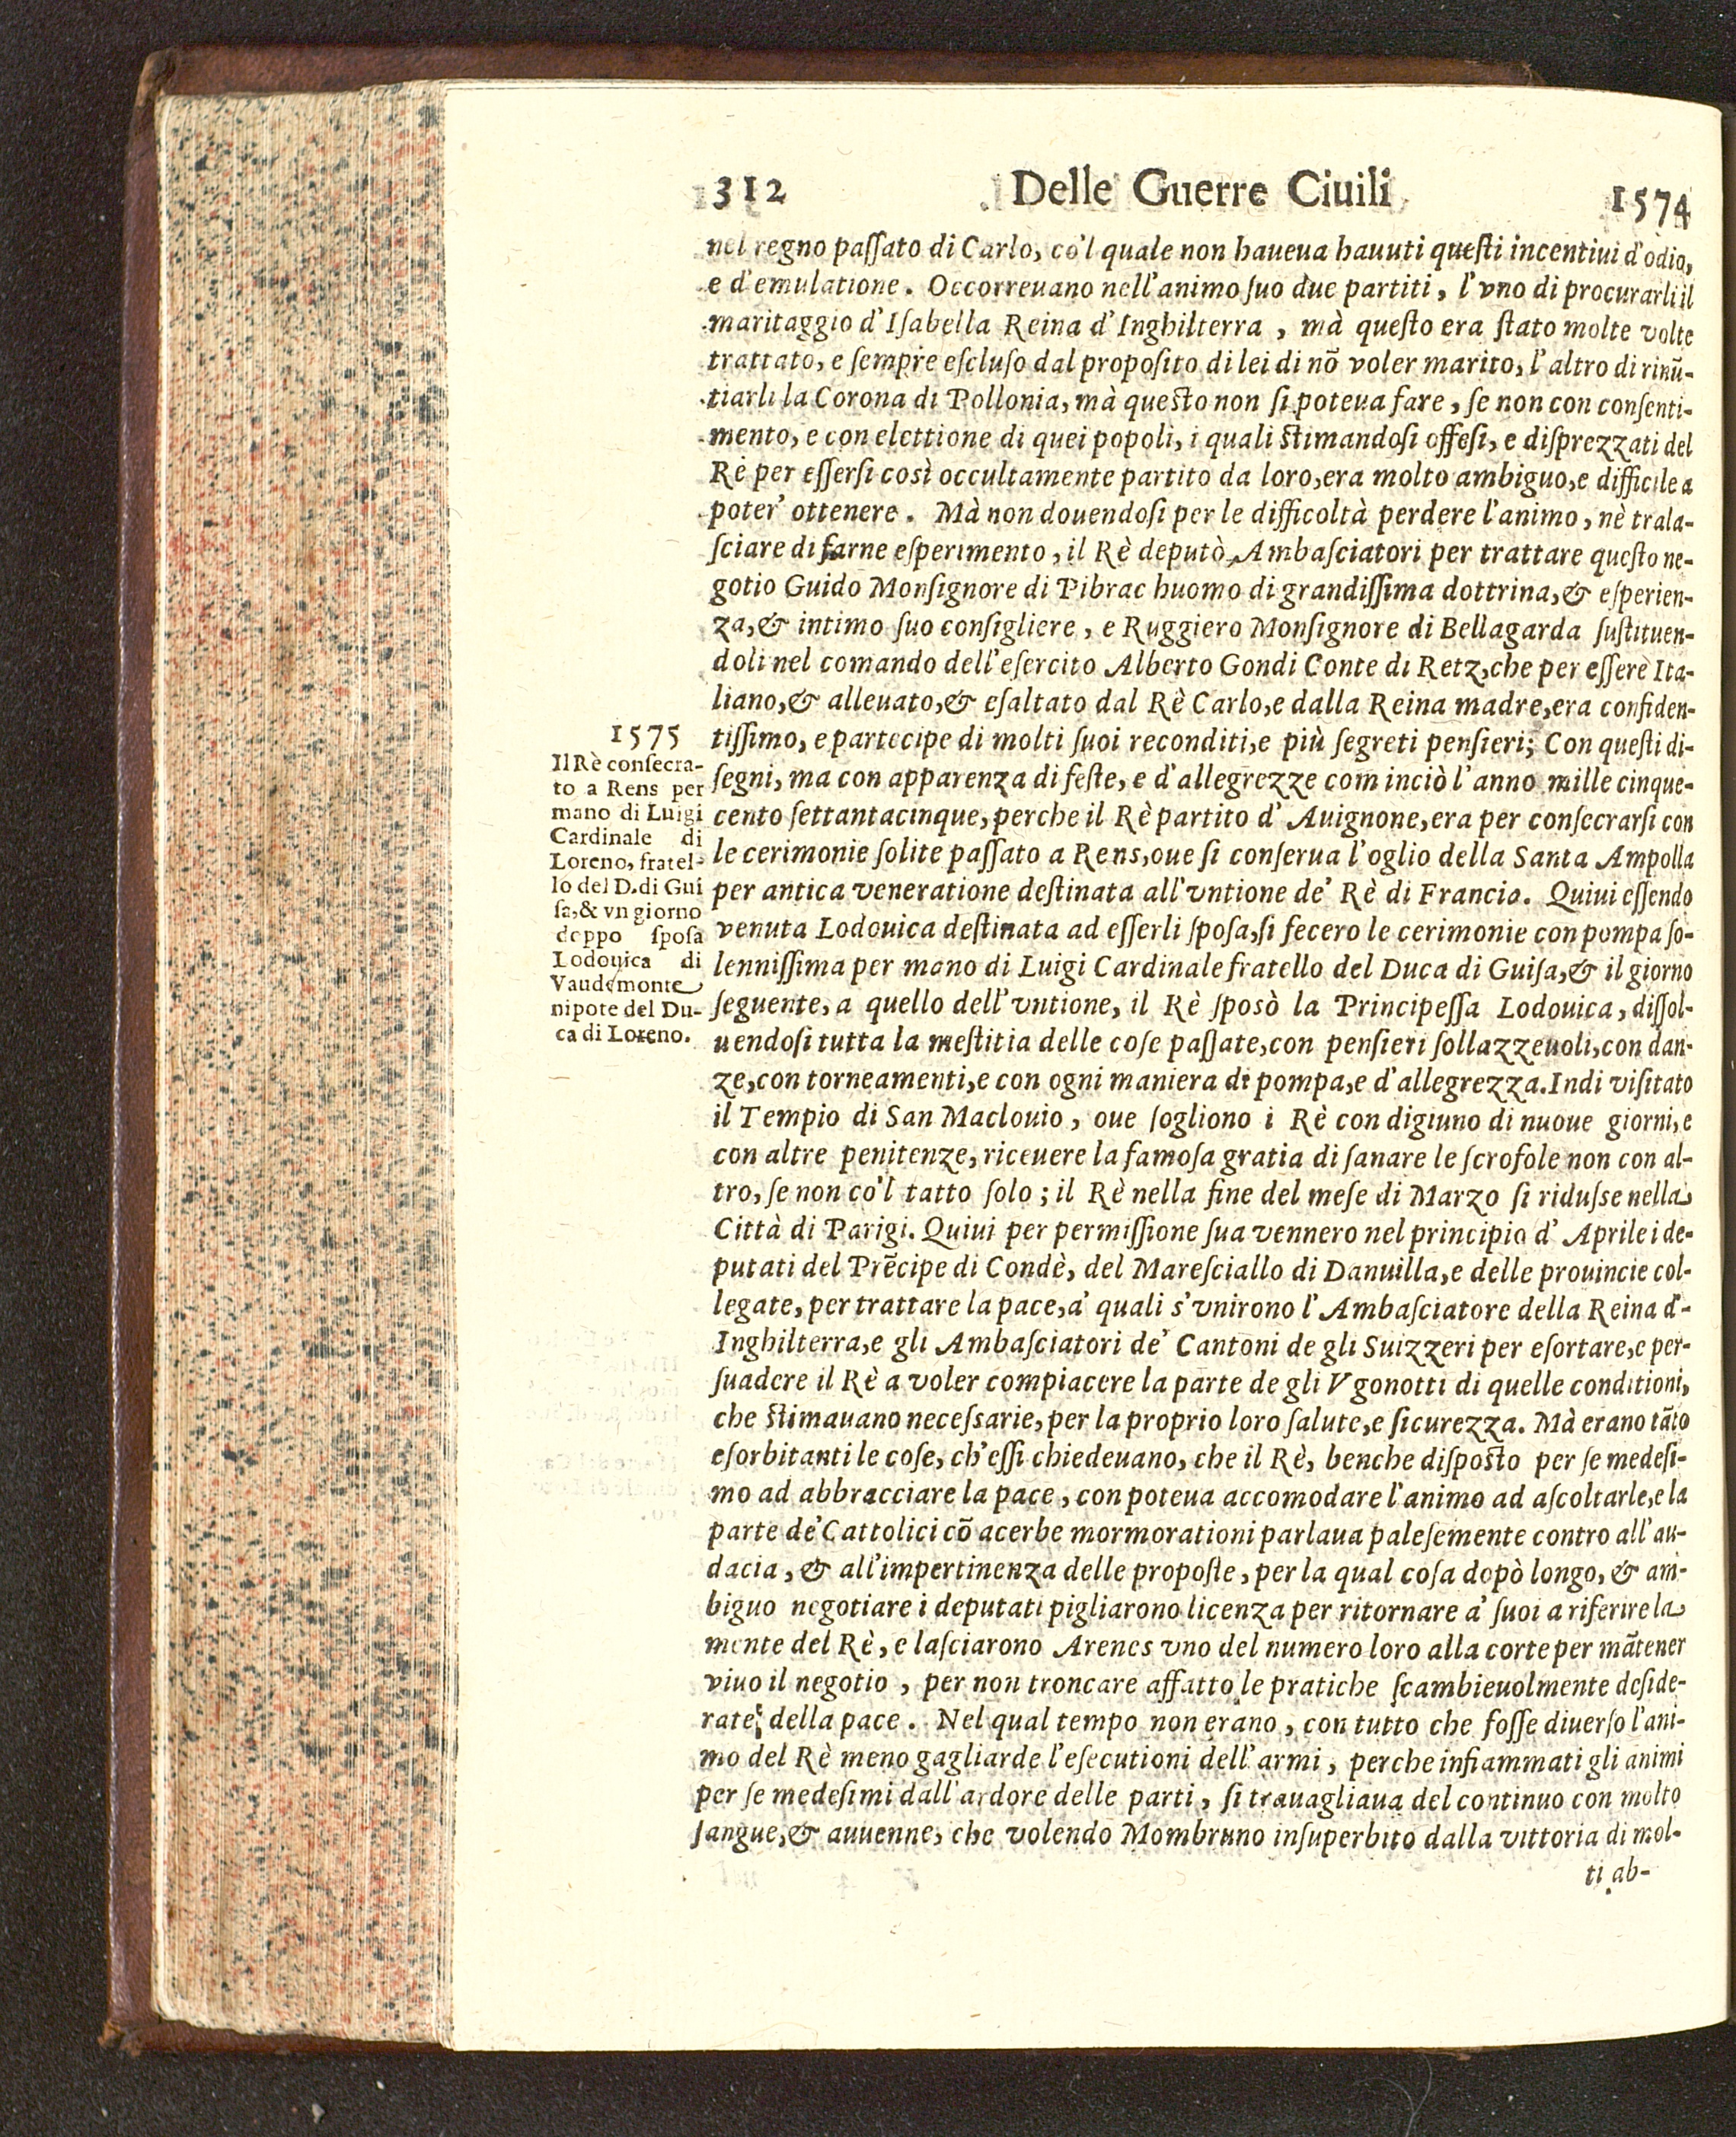 312 Delle Guerre Ciuili 1574
nel regno paſſato di Carlo, co'l quale non haueua hauuti queſti incentiui d'odio,
e d'emulatione. Occorreuano nell'animo ſuo due partiti, l'vno di procurarli il
maritaggio d'Iſabella Reina d'Inghilterra, mà queſto era ſtato molte volte
trattato, e ſempre eſcluſo dal propoſito di lei di nō voler marito, l'altro di rinū-
tiarli la Corona di Pollonia, mà queſto non ſi poteua fare, ſe non con conſenti-
mento, e con elettione di quei popoli, i quali ſtimandoſi offeſi, e diſprezzati del
Rè per eſſerſi così occultamente partito da loro, era molto ambiguo, e difficile a
poter' ottenere. Mà non douendoſi per le difficoltà perdere l'animo, nè trala-
ſciare di farne eſperimento, il Rè deputò Ambaſciatori per trattare queſto ne-
gotio Guido Monſignore di Pibrac huomo di grandiſſima dottrina, & eſperien-
za, & intimo ſuo conſigliere, e Ruggiero Monſignore di Bellagarda ſuſtituen-
doli nel comando dell'eſercito Alberto Gondi Conte di Retz, che per eſſere Ita-
liano, & alleuato, & eſaltato dal Rè Carlo, e dalla Reina madre, era confiden-
tiſſimo, e partecipe di molti ſuoi reconditi, e più ſegreti penſieri; Con queſti di-
ſegni, ma con apparenza di feſte, e d'allegrezze com inciò l'anno mille cinque-
cento ſettantacinque, perche il Rè partito d'Auignone, era per conſecrarſi con
le cerimonie ſolite paſſato a Rens, oue ſi conſerua l'oglio della Santa Ampolla
per antica veneratione deſtinata all'vntione de' Rè di Francia. Quiui eſſendo
venuta Lodouica deſtinata ad eſſerli ſpoſa, ſi fecero le cerimonie con pompa ſo-
lenniſſima per mano di Luigi Cardinale fratello del Duca di Guiſa, & il giorno
ſeguente, a quello dell'vntione, il Rè ſposò la Principeſſa Lodouica, diſſol-
uendoſi tutta la meſtitia delle coſe paſſate, con penſieri ſollazzeuoli, con dan-
ze, con torneamenti, e con ogni maniera di pompa, e d'allegrezza. Indi viſitato
il Tempio di San Maclouio, oue ſogliono i Rè con digiuno di nuoue giorni, e
con altre penitenze, riceuere la famoſa gratia di ſanare le ſcrofole non con al-
tro, ſe non co'l tatto ſolo; il Rè nella fine del meſe di Marzo ſi riduſse nella
Città di Parigi. Quiui per permiſſione ſua vennero nel principio d'Aprile i de-
putati del Prēcipe di Condè, del Mareſciallo di Danuilla, e delle prouincie col-
legate, per trattare la pace, a' quali s'vnirono l'Ambaſciatore della Reina d'-
Inghilterra, e gli Ambaſciatori de' Cantoni de gli Suizzeri per eſortare, e per-
ſuadere il Rè a voler compiacere la parte de gli Vgonotti di quelle conditioni,
che ſtimauano neceſsarie, per la proprio loro ſalute, e ſicurezza. Mà erano tāto
eſorbitanti le coſe, ch'eſſi chiedeuano, che il Rè, benche diſpoſto per ſe medeſi-
mo ad abbracciare la pace, con poteua accomodare l'animo ad aſcoltarle, e la
parte de' Cattolici cō acerbe mormorationi parlaua paleſemente contro all'au-
dacia, & all'impertinenza delle propoſte, per la qual coſa dopò longo, & am-
biguo negotiare i deputati pigliarono licenza per ritornare a' ſuoi a riferire la
mente del Rè, e laſciarono Arenes vno del numero loro alla corte per mātener
viuo il negotio, per non troncare affatto le pratiche ſcambieuolmente deſide-
rate della pace. Nel qual tempo non erano, con tutto che foſſe diuerſo l'ani-
mo del Rè meno gagliarde l'eſecutioni dell'armi, perche infiammati gli animi
per ſe medeſimi dall'ardore delle parti, ſi trauagliaua del continuo con molto
ſangue, & auuenne, che volendo Mombruno inſuperbito dalla vittoria di mol-
ti ab-
1575
Il Rè conſecra-
to a Rens per
mano di Luigi
Cardinale di
Loreno, fratel-
lo del D. di Gui
ſa, & vn giorno
doppo ſpoſa
Lodouica di
Vaudemonte
nipote del Du-
ca di Loreno.